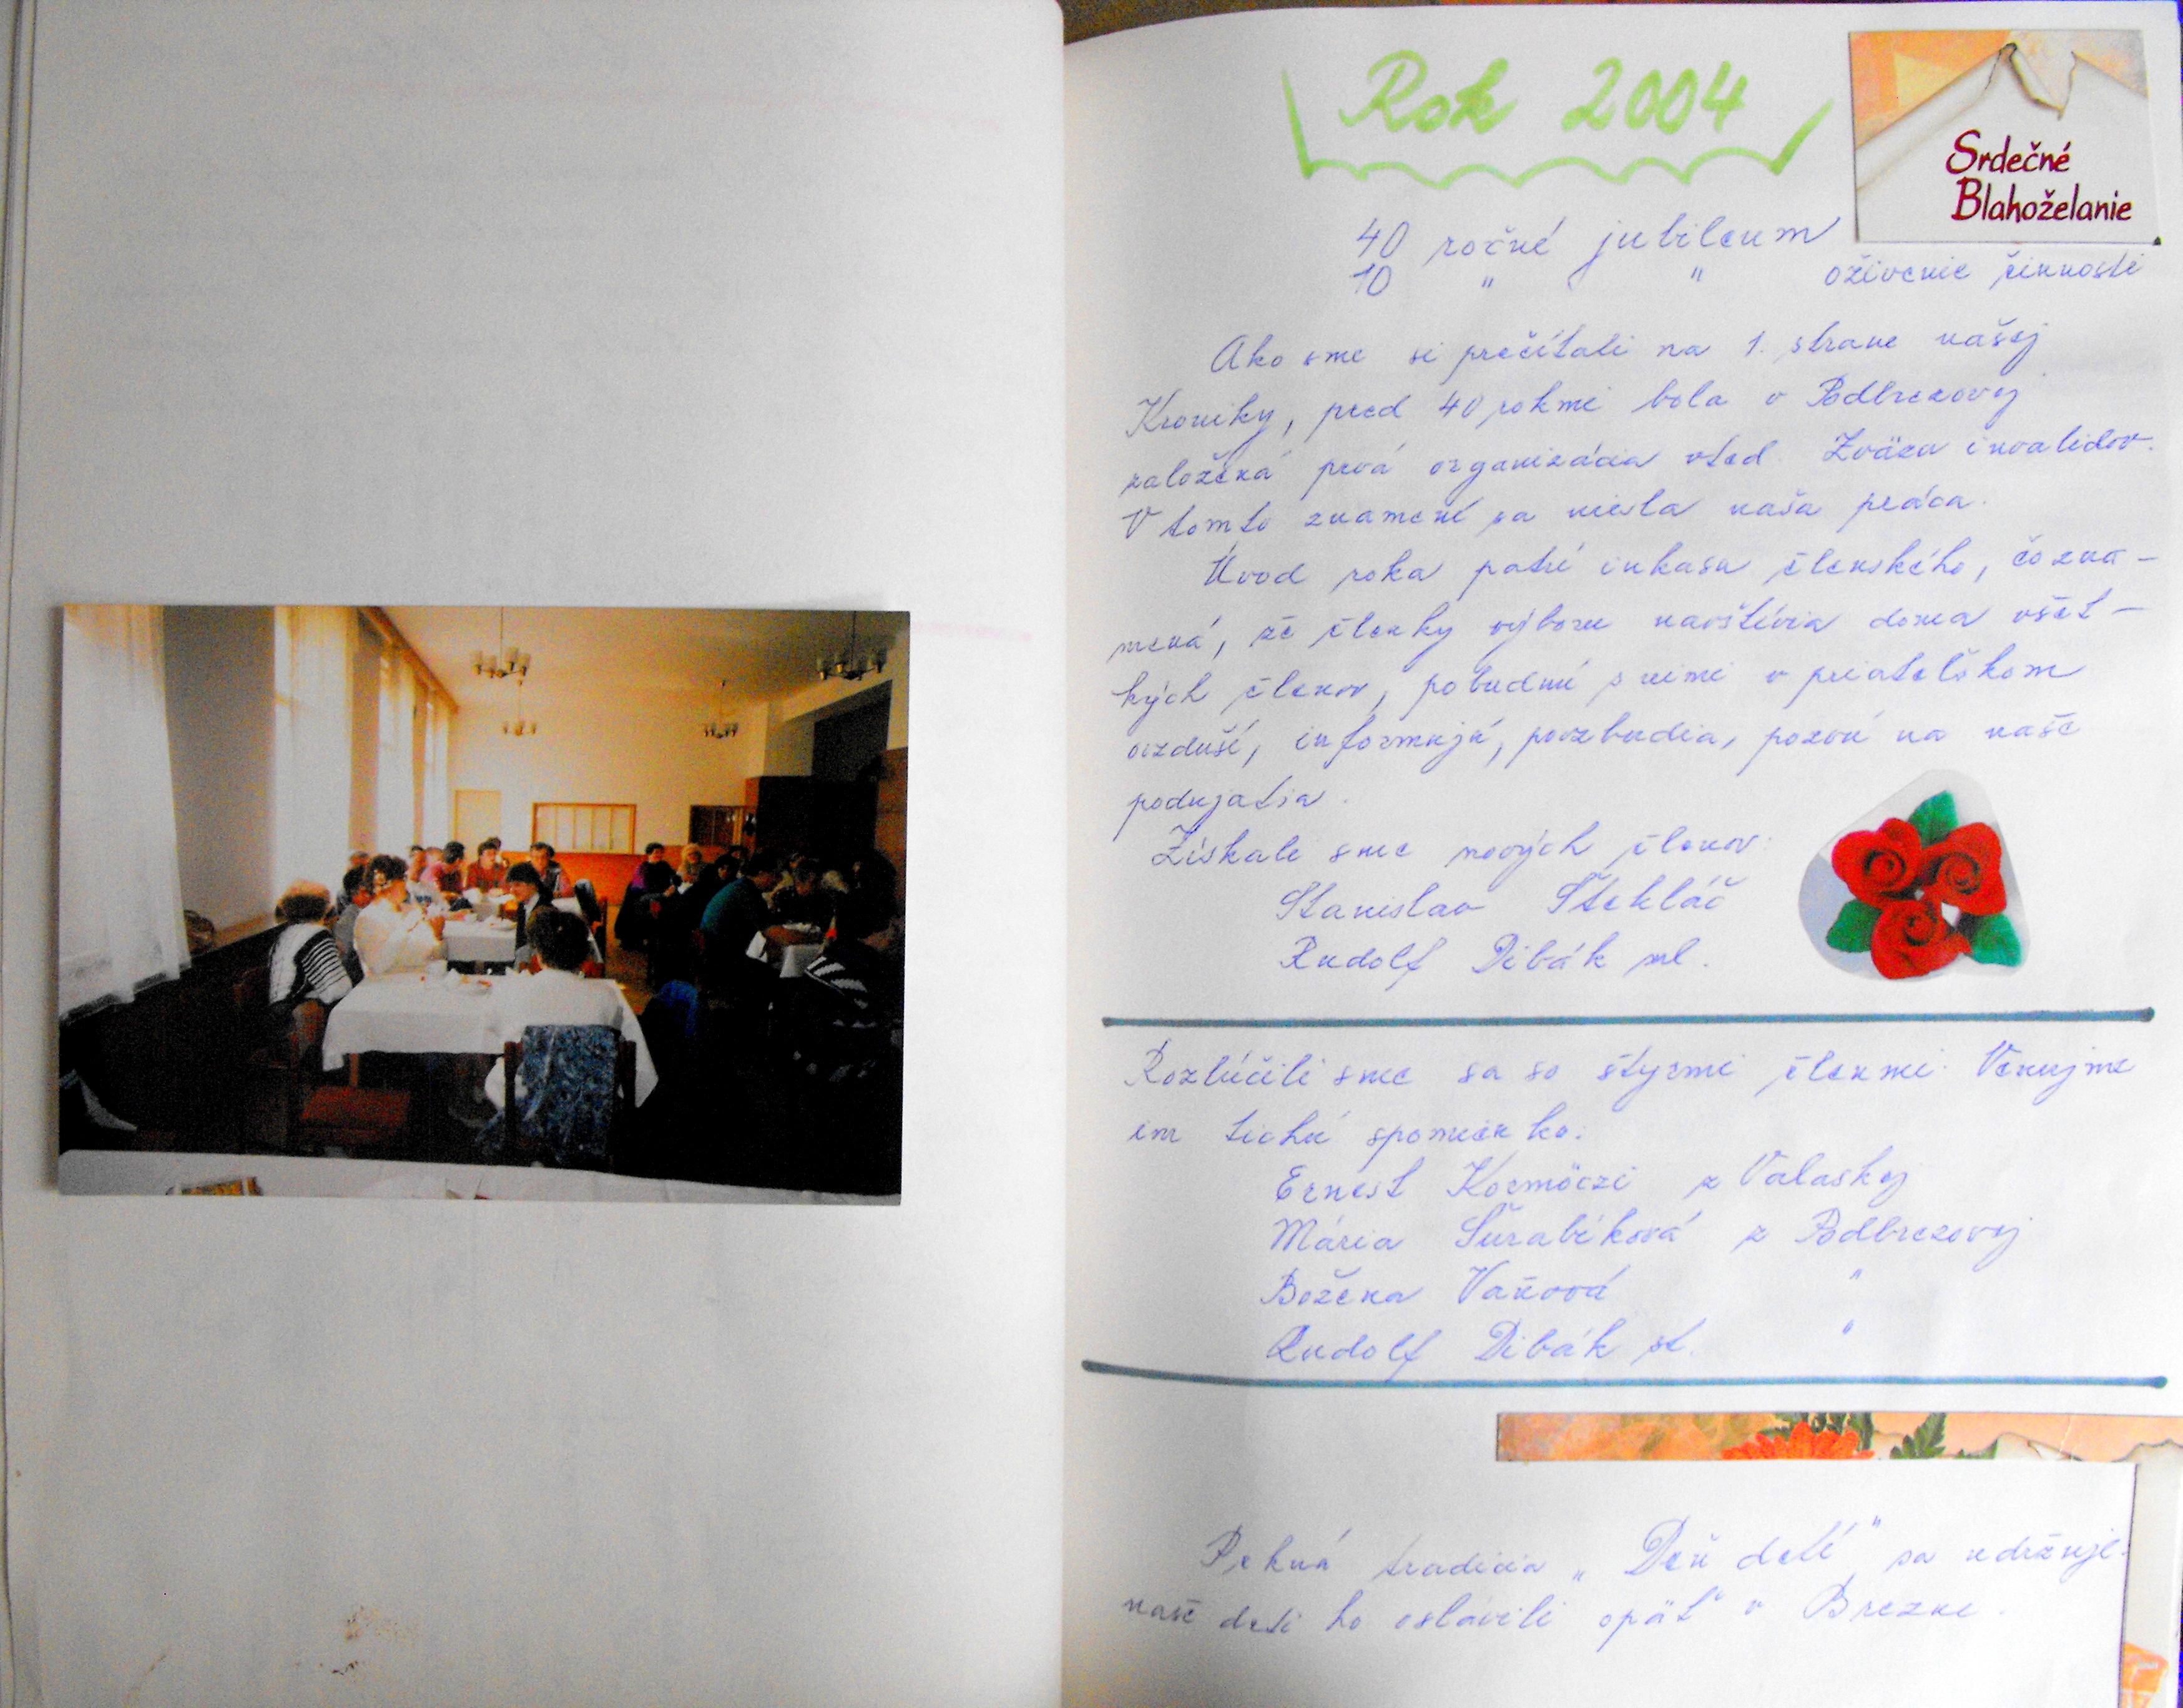 Rok 2004
Srdečné
Blahoželanie
40 ročné jubileum
10 " " oživenie činnosti
Ako sme si prečítali na 1. strane našej
Kroniky, pred 40 rokmi bola v Podbrezovej
založená prvá organizácia vted. Zväzu invalidov.
V tomto znamení sa niesla naša práca.
Úvod roka patrí inkasu členského, čo zna-
mená, že členky výboru navštívia doma všet-
kých členov, pobudnú s nimi v priateľskom
ovzduší, informujú, povzbudia, pozvú na naše
podujatia.
Získali sme nových členov:
Stanislav Štekláč
Rudolf Dibák ml.
Rozlúčili sme sa so štyrmi členmi. Venujme
im tichú spomienku:
Ernest Kormöczi z Valaskej
Mária Šurabíková z Podbrezovej
Božena Vaňová "
Rudolf Dibák st. "
Pekná tradícia „Deň detí" sa udržuje-
naše deti ho oslávili opäť v Brezne.